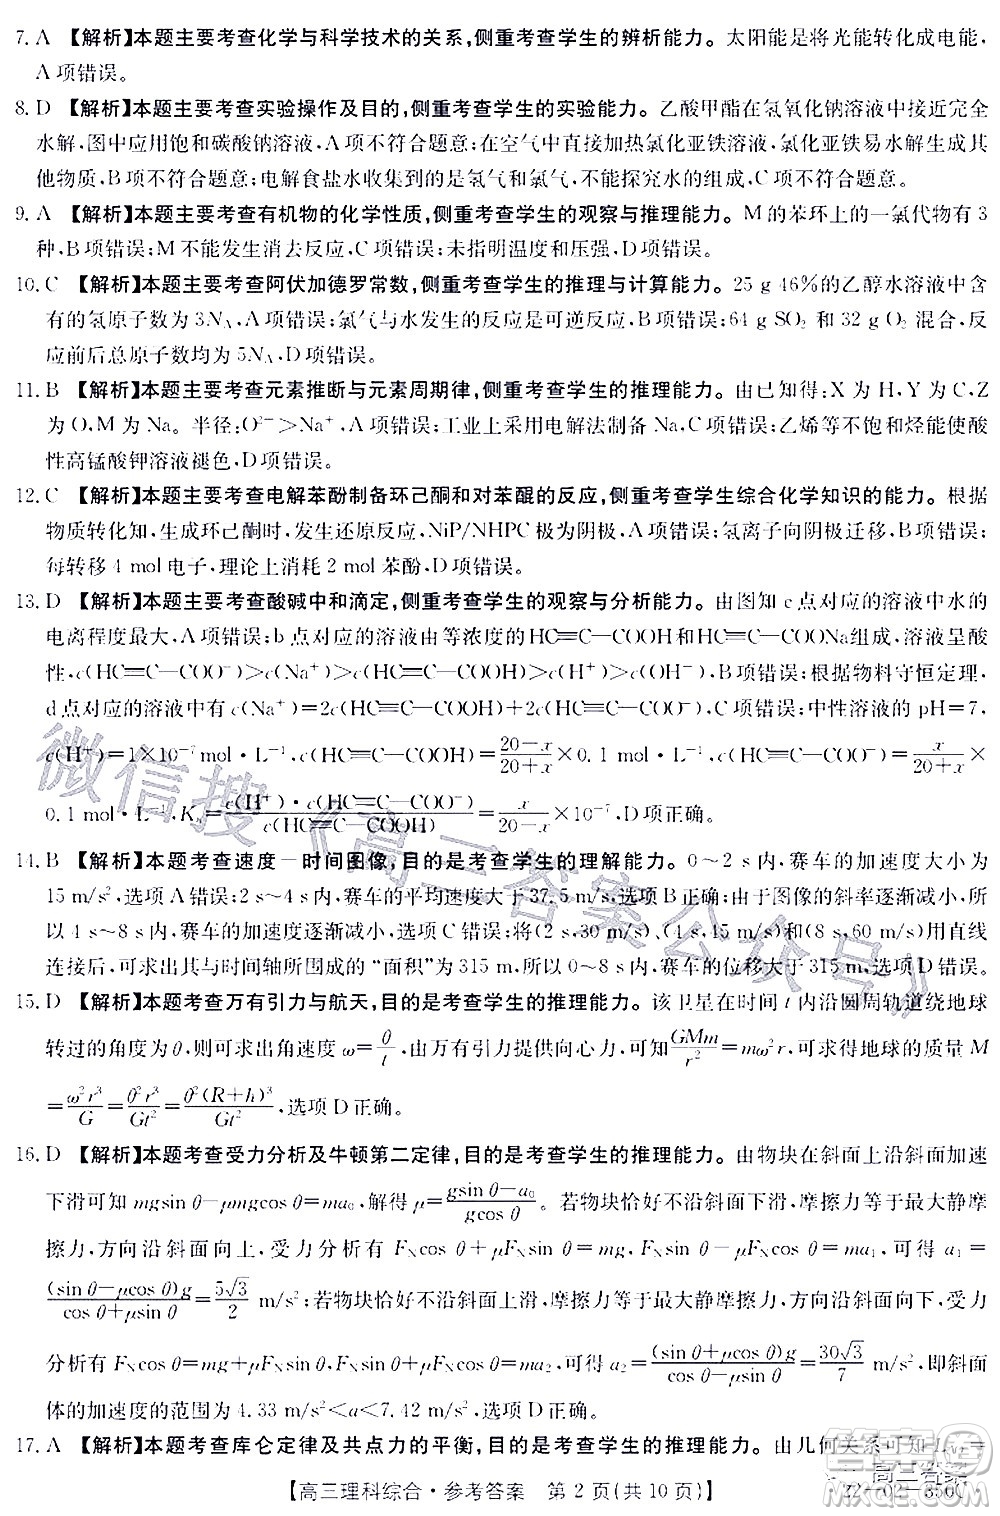 7. A 【解析】本题主要考查化学与科学技术的关系,侧重考查学生的辨析能力。太阳能是将光能转化成电能,
A 项错误。
8. D 【解析】本题主要考查实验操作及目的,侧重考查学生的实验能力。乙酸甲酯在氢氧化钠溶液中接近完全
水解,图中应用饱和碳酸钠溶液,A 项不符合题意;在空气中直接加热氯化亚铁溶液,氯化亚铁易水解生成其
他物质,B 项不符合题意;电解食盐水收集到的是氢气和氯气,不能探究水的组成,C 项不符合题意。
9. A 【解析】本题主要考查有机物的化学性质,侧重考查学生的观察与推理能力。M 的苯环上的一氯代物有 3
种,B 项错误;M 不能发生消去反应,C 项错误;未指明温度和压强,D 项错误。
10. C 【解析】本题主要考查阿伏加德罗常数,侧重考查学生的推理与计算能力。25 g 46%的乙醇水溶液中含
有的氢原子数为 3N_A,A 项错误;氯气与水发生的反应是可逆反应,B 项错误;64 g SO₂ 和 32 g O₂ 混合,反
应前后总原子数均为 5N_A,D 项错误。
11. B 【解析】本题主要考查元素推断与元素周期律,侧重考查学生的推理能力。由已知得:X 为 H,Y 为 C,Z
为 O,M 为 Na。半径:O²⁻>Na⁺,A 项错误;工业上采用电解法制备 Na,C 项错误;乙烯等不饱和烃能使酸
性高锰酸钾溶液褪色,D 项错误。
12. C 【解析】本题主要考查电解苯酚制备环己酮和对苯醌的反应,侧重考查学生综合化学知识的能力。根据
物质转化知,生成环己酮时,发生还原反应,NiP/NHPC 极为阴极,A 项错误;氢离子向阴极迁移,B 项错误;
每转移 4 mol 电子,理论上消耗 2 mol 苯酚,D 项错误。
13. D 【解析】本题主要考查酸碱中和滴定,侧重考查学生的观察与分析能力。由图知 c 点对应的溶液中水的
电离程度最大,A 项错误;b 点对应的溶液由等浓度的HC≡C—COOH和HC≡C—COONa组成,溶液呈酸
性,c(HC≡C—COO⁻)>c(Na⁺)>c(HC≡C—COOH)>c(H⁺)>c(OH⁻),B 项错误;根据物料守恒定理,
d 点对应的溶液中有 c(Na⁺)=2c(HC≡C—COOH)+2c(HC≡C—COO⁻),C 项错误;中性溶液的 pH=7,
c(H⁺)=1×10⁻⁷ mol·L⁻¹,c(HC≡C—COOH)=(20-x)/(20+x)×0.1 mol·L⁻¹,c(HC≡C—COO⁻)=x/(20+x)×
0.1 mol·L⁻¹,Kₐ=c(H⁺)·c(HC≡C—COO⁻)/c(HC≡C—COOH)=x/(20-x)×10⁻⁷,D 项正确。
14. B 【解析】本题考查速度—时间图像,目的是考查学生的理解能力。0~2 s 内,赛车的加速度大小为
15 m/s²,选项 A 错误;2 s~4 s 内,赛车的平均速度大于 37.5 m/s,选项 B 正确;由于图像的斜率逐渐减小,所
以 4 s~8 s 内,赛车的加速度逐渐减小,选项 C 错误;将(2 s,30 m/s)、(4 s,45 m/s)和(8 s,60 m/s)用直线
连接,可求出其与时间轴所围的“面积”为 315 m,所以 0~8 s 内,赛车的位移大于 315 m,选项 D 错误。
15. D 【解析】本题考查万有引力与航天,目的是考查学生的推理能力。该卫星在时间 t 内沿圆周轨道绕地球
转过的角度为 θ,则可求出角速度 ω=θ/t,由万有引力提供向心力,可知GMm/r²=mω²r,可求得地球的质量 M
=ω²r³/G=θ²r³/Gt²=θ²(R+h)³/Gt²,选项 D 正确。
16. D 【解析】本题考查受力分析及牛顿第二定律,目的是考查学生的推理能力。由物块在斜面上沿斜面加速
下滑可知 mgsin θ-μmgcos θ=ma₀,解得 μ=(gsin θ-a₀)/(gcos θ)。若物块恰好不沿斜面下滑,摩擦力等于最大静摩
擦力,方向沿斜面向上,受力分析有 F_N cos θ+μF_N sin θ=mg,F_N sin θ-μF_N cos θ=ma₁,可得 a₁=
(sin θ-μcos θ)g/(cos θ+μsin θ)=5√3/2 m/s²;若物块恰好不沿斜面上滑,摩擦力等于最大静摩擦力,方向沿斜面向下,受力
分析有 F_N cos θ=mg+μF_N sin θ,F_N sin θ+μF_N cos θ=ma₂,可得 a₂=(sin θ+μcos θ)g/(cos θ-μsin θ)=30√3/7 m/s²,即斜面
体的加速度的范围为 4.33 m/s²<a<7.42 m/s²,选项 D 正确。
17. A 【解析】本题考查库仑定律及共点力的平衡,目的是考查学生的推理能力。由几何关系可知
【高三理科综合·参考答案 第 2 页(共 10 页)】
微信搜《高三答案公众号》
高三答案